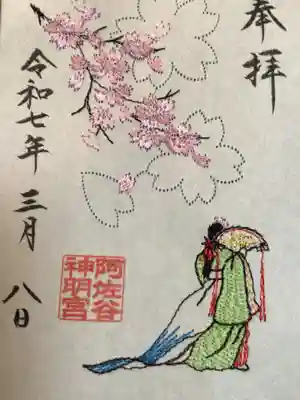 奉拝
令和七年三月八日
阿佐谷
神明宮